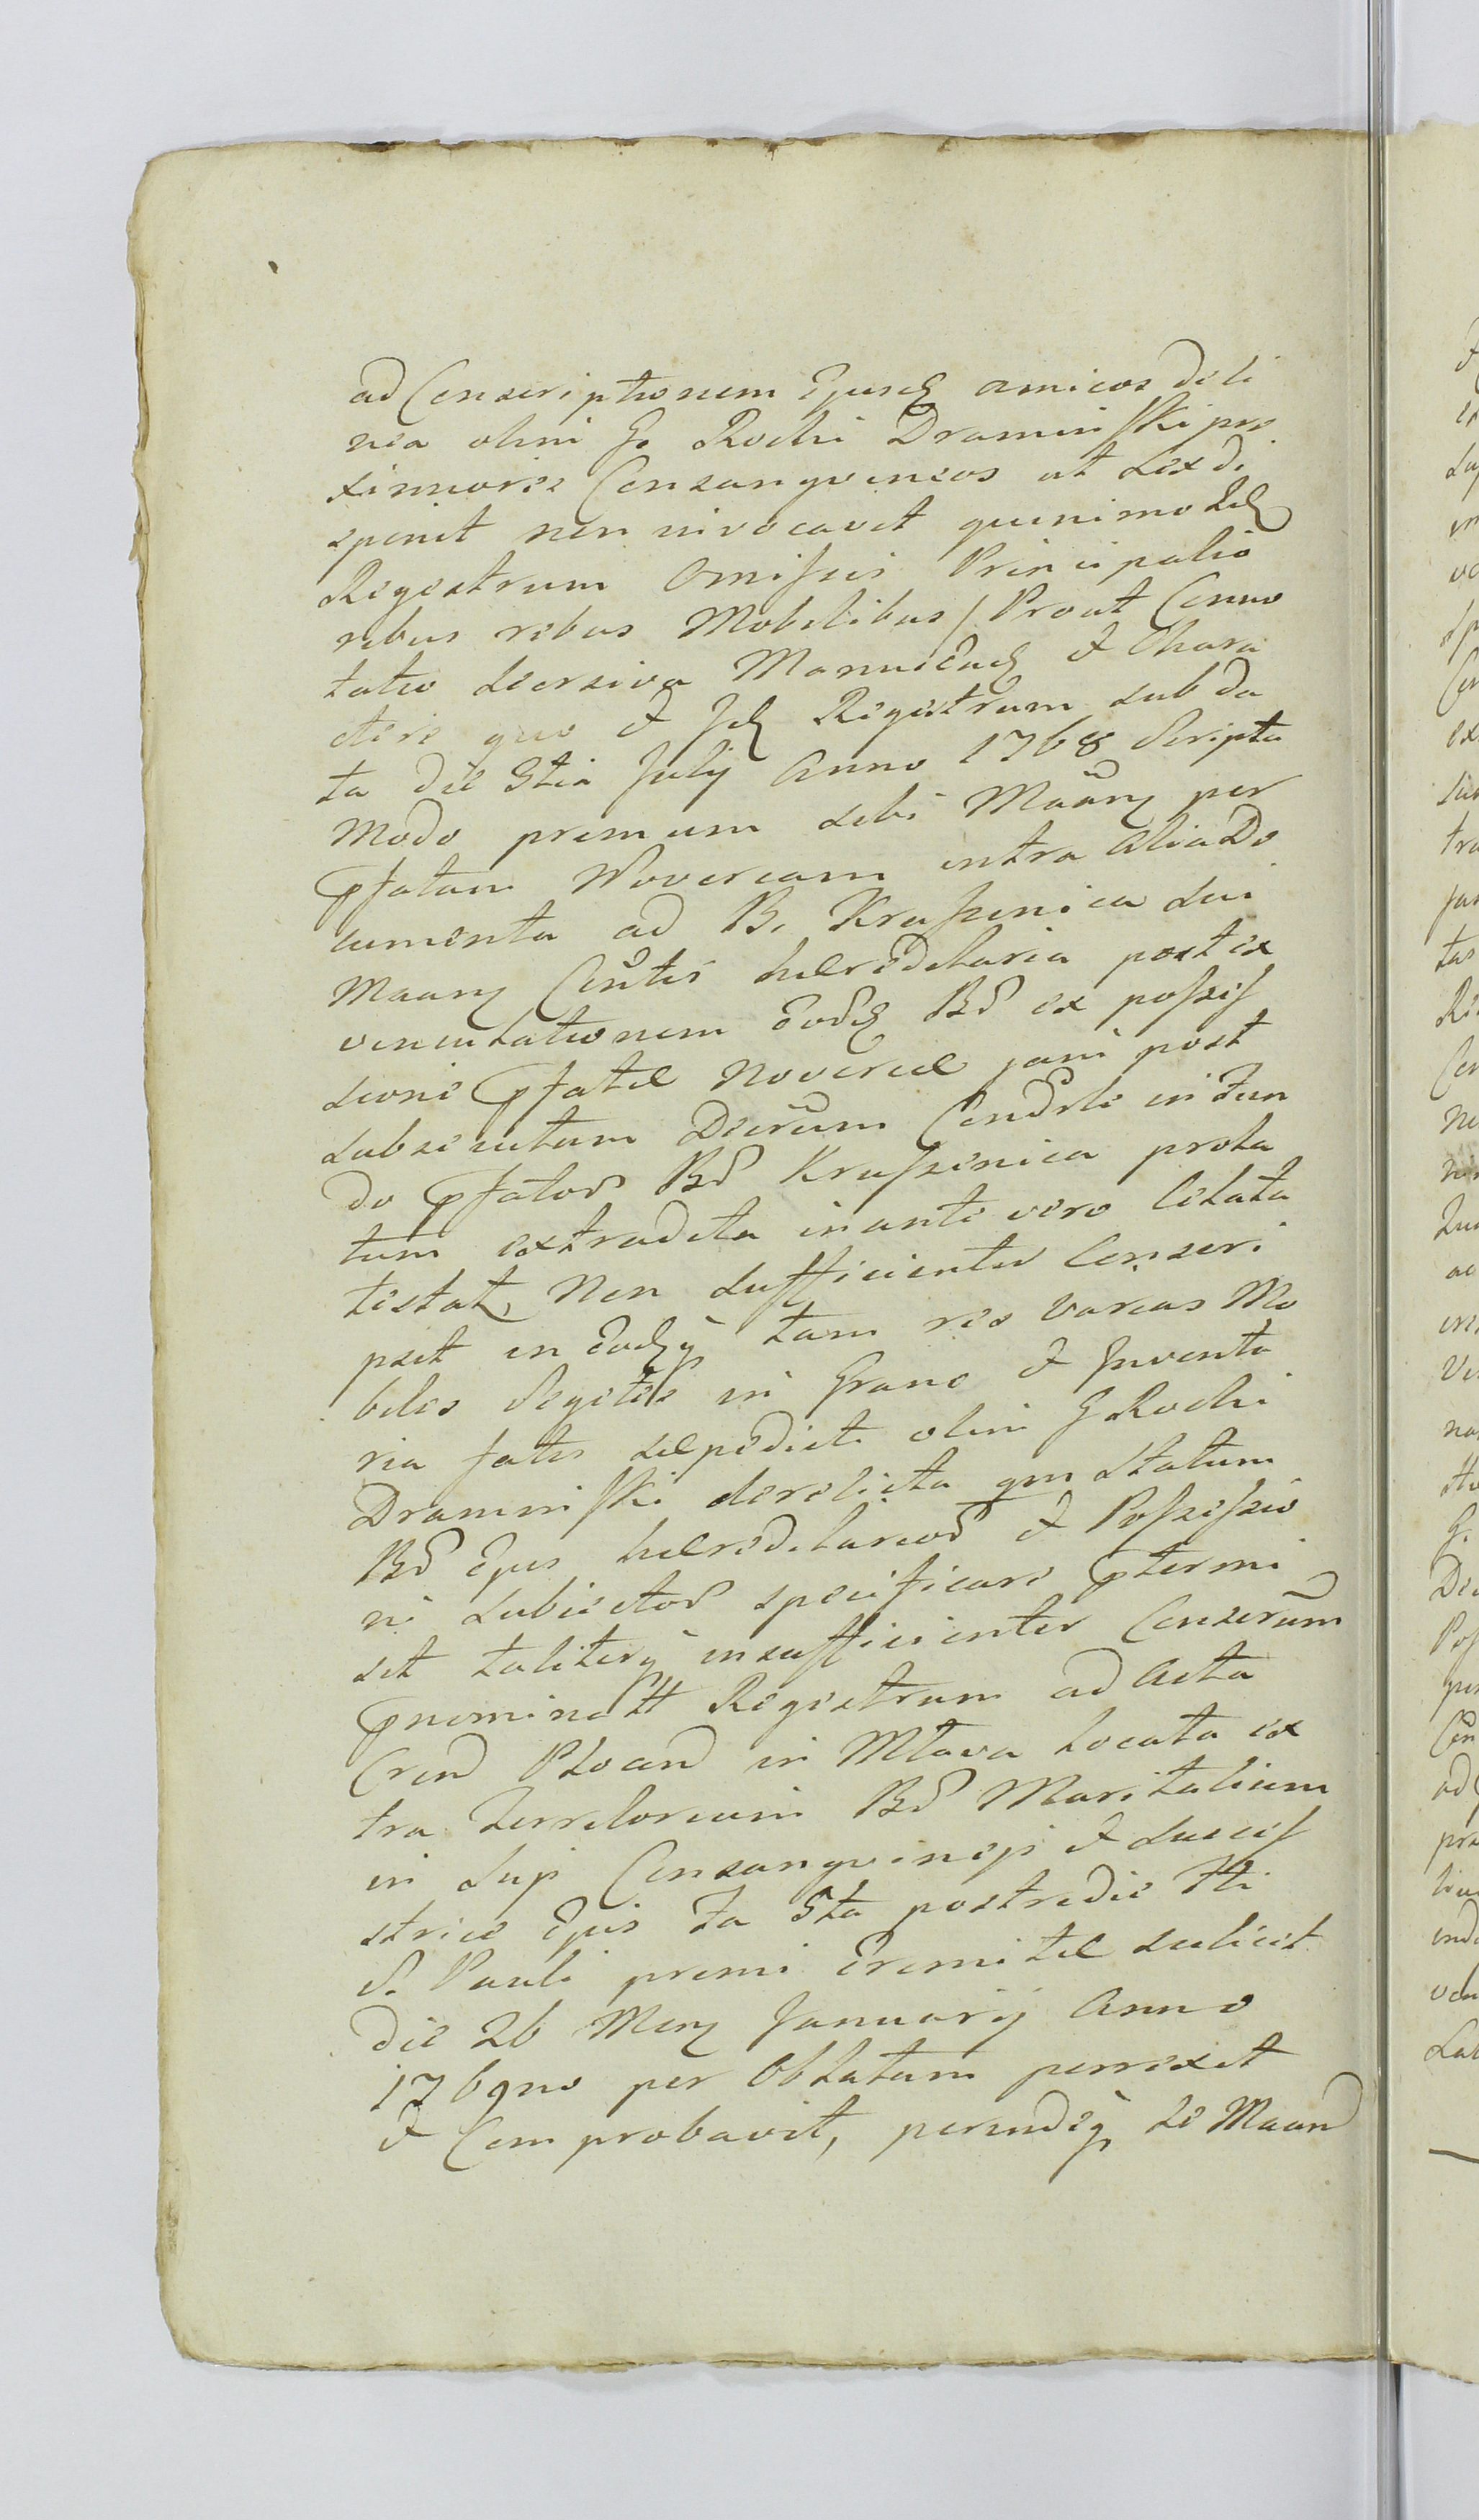 ad Conscriptionem Ejusd amicos de li
nea olim G. Rochi Draminski pro
ximiores Consangvineos ut Lex di
sponit non invocavit quinimo tal
Regestrum omissis Principalio
ribus rebus Mobilibus / Prout Conno
tatio seorsiva Manu Ead et Chara
ctere quo et Id Regestrum sub da
ta die 3tia July Anno 1768 Scripta
modo primum sibi Maang per
pfatam Novercam intra alia Do
cumenta ad B. Kraszenica sui
Maang Centis hereditaria post ex
venditationem Eord Bd ex posses
sione pfatae Novercae jam post
subsecutum Decrum Condsle in Fun
do pfator Bd Kraszenica prola
tum extradita in anti vero Citata
testat, Non sufficienter Conscri
psit in Eodq tam res varias Mo
biles Segetes in Grano et Inventa
ria fatis saepedicti olim G Rochi
Draminski derelicta qm statum
Bd Ejus haereditariod et Possessio
ni subiector specificare ptermi
sit taliterq insufficienter Conscrum
pnominatt Regestrum ad Acta
Crend Plocen in Mlava Locata ex
tra Territorium Bd Maritalium
in Sup Consangvinep et Succes
strice Ejus Fa 5ta postridie Fti
S. Pauli primi Eremitae scilicet
die 26 Meng Januarij Anno
1769no per Oblatam porrexit
et Comprobavit, perindeq te Maand